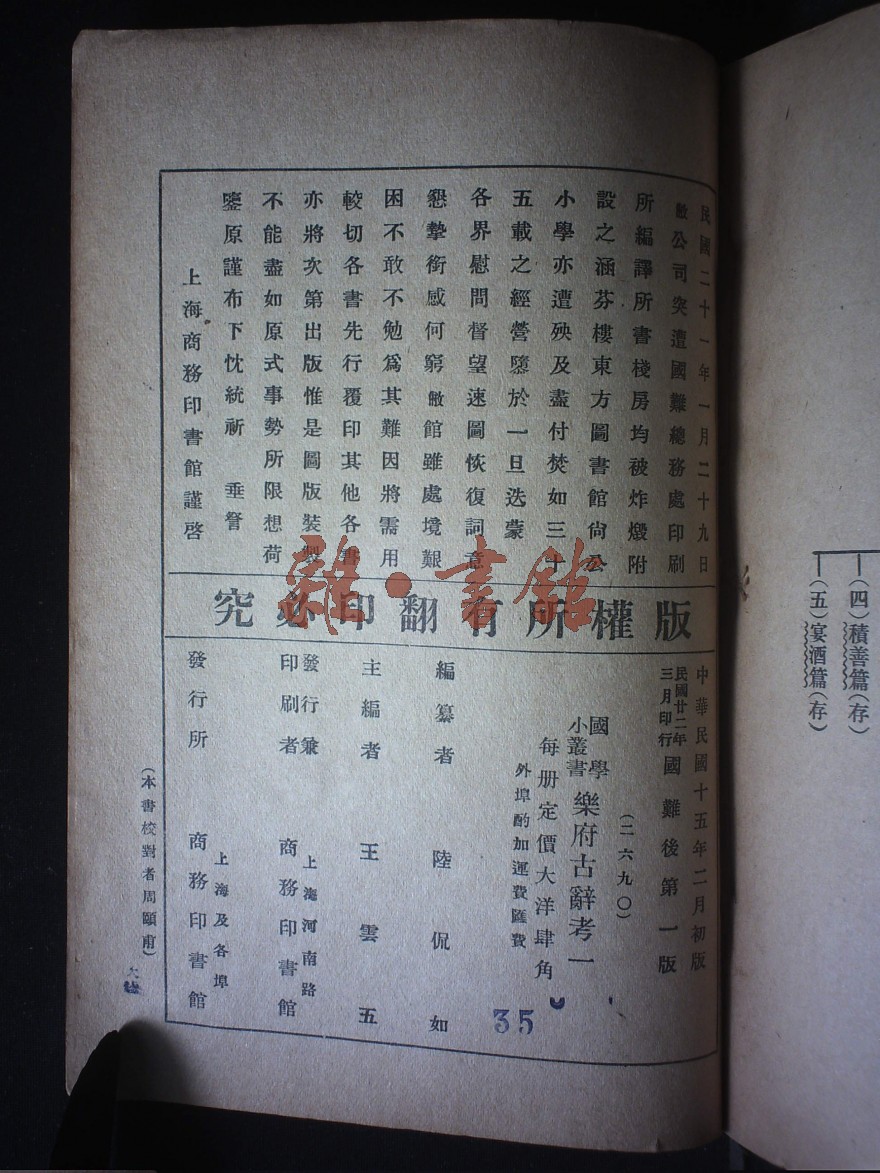 民國二十一年一月二十九日
敝公司突遭國難總務處印刷
所編譯所書棧房均被炸燬附
設之涵芬樓東方圖書館尙公
小學亦遭殃及盡付焚如三十
五載之經營隳於一旦迭蒙
各界慰問督望速圖恢復詞意
懇摯銜感何窮敝館雖處境艱
困不敢不勉爲其難因將需用
較切各書先行覆印其他各書
亦將次第出版惟是圖版裝製
不能盡如原式事勢所限想荷
鑒原謹布下忱統祈 垂詧
上海商務印書館謹啓
版權所有翻印必究
中華民國十五年二月初版
民國廿二年三月印行國難後第一版
(二六九〇)
國學小叢書樂府古辭考一
每册定價大洋肆角
外埠酌加運費匯費
編纂者 陸侃如
主編者 王雲五
發行兼印刷者 上海河南路商務印書館
發行所 上海及各埠商務印書館
(本書校對者周頤甫)
35
雜·書館
(四)積善篇(存)
(五)宴酒篇(存)